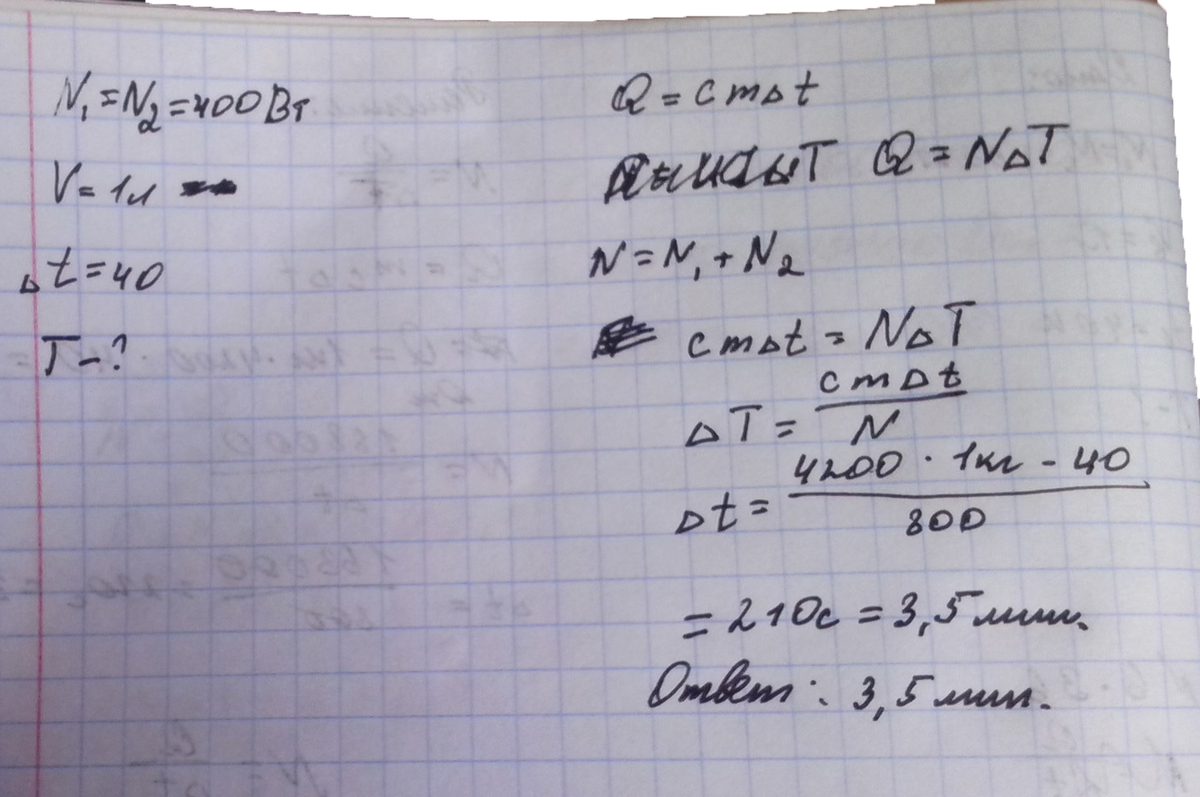 N₁ = N₂ = 400 Вт
V = 1л
Δt = 40
T - ?
Q = cmΔt
Q = NΔT
N = N₁ + N₂
cmΔt = NΔT
ΔT = cmΔt / N
Δt = 4200 · 1кг - 40 / 800
= 210с = 3,5 мин.
Ответ: 3,5 мин.